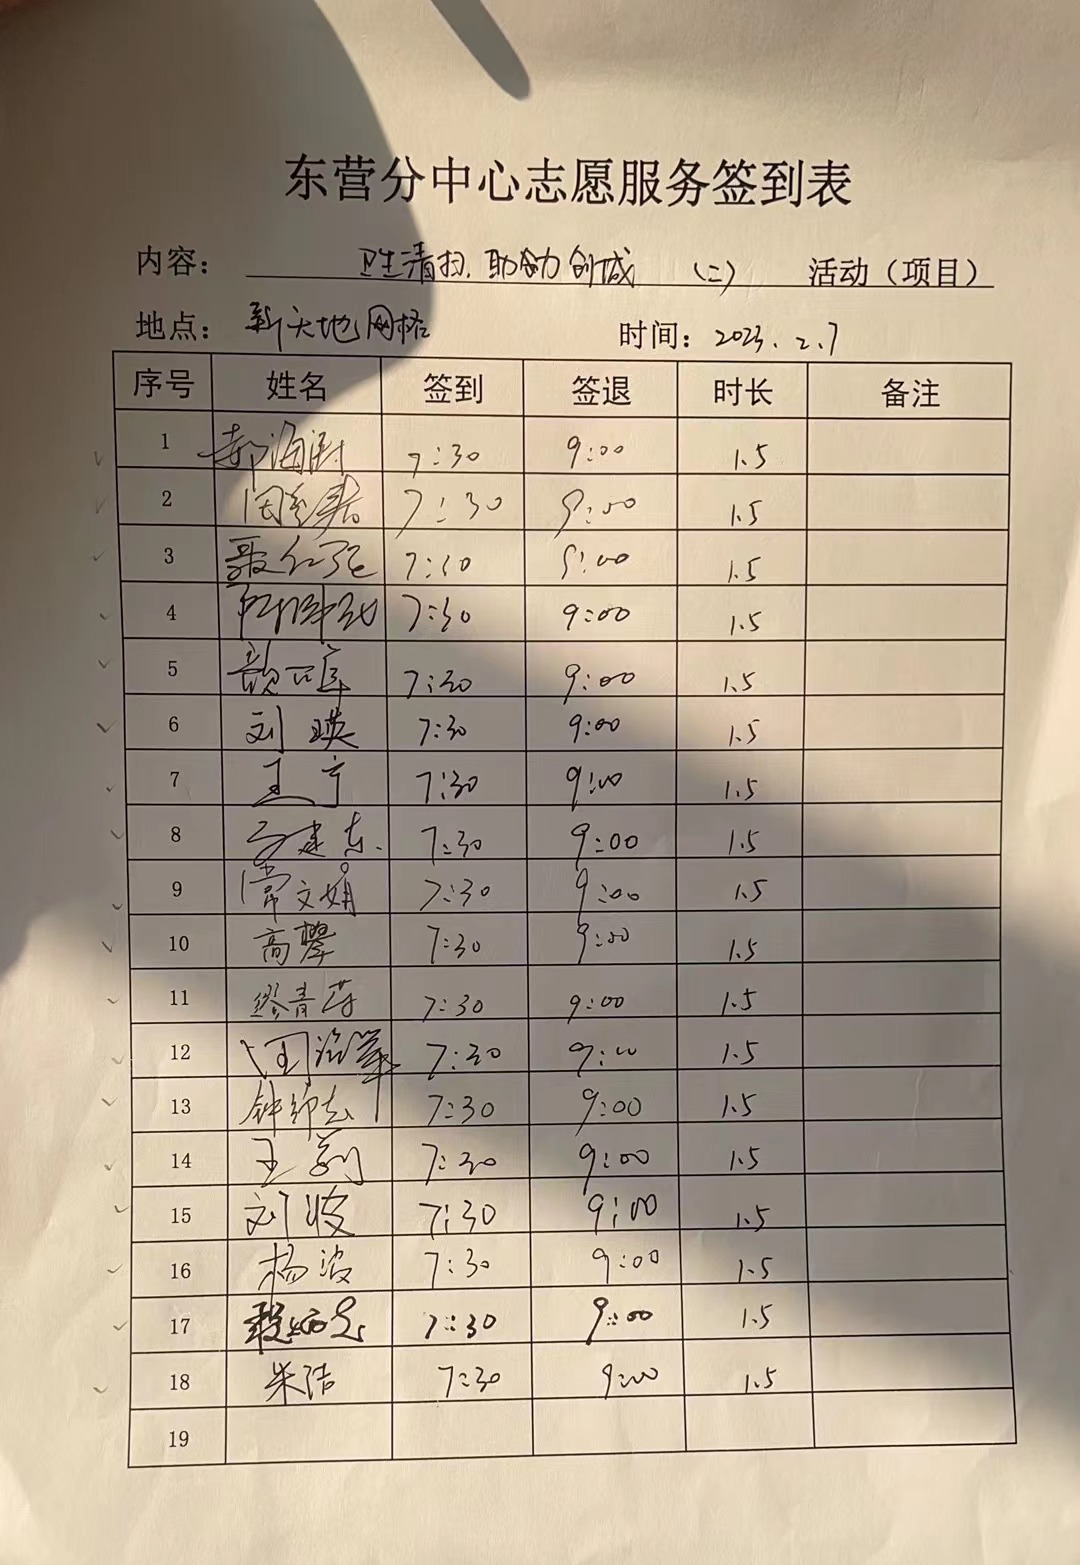 东营分中心志愿服务签到表
内容： 卫生清扫.助力创城 （二） 活动（项目）
地点： 新天地网格 时间：2023.2.7
序号 姓名 签到 签退 时长 备注
1 郝海涛 7:30 9:00 1.5
2 7:30 9:00 1.5
3 7:30 9:00 1.5
4 7:30 9:00 1.5
5 7:30 9:00 1.5
6 刘瑛 7:30 9:00 1.5
7 王宁 7:30 9:00 1.5
8 建东 7:30 9:00 1.5
9 常文娟 7:30 9:00 1.5
10 高攀 7:30 9:00 1.5
11 缪青 7:30 9:00 1.5
12 7:30 9:00 1.5
13 钟 7:30 9:00 1.5
14 王莉 7:30 9:00 1.5
15 刘波 7:30 9:00 1.5
16 杨波 7:30 9:00 1.5
17 7:30 9:00 1.5
18 朱洁 7:30 9:00 1.5
19